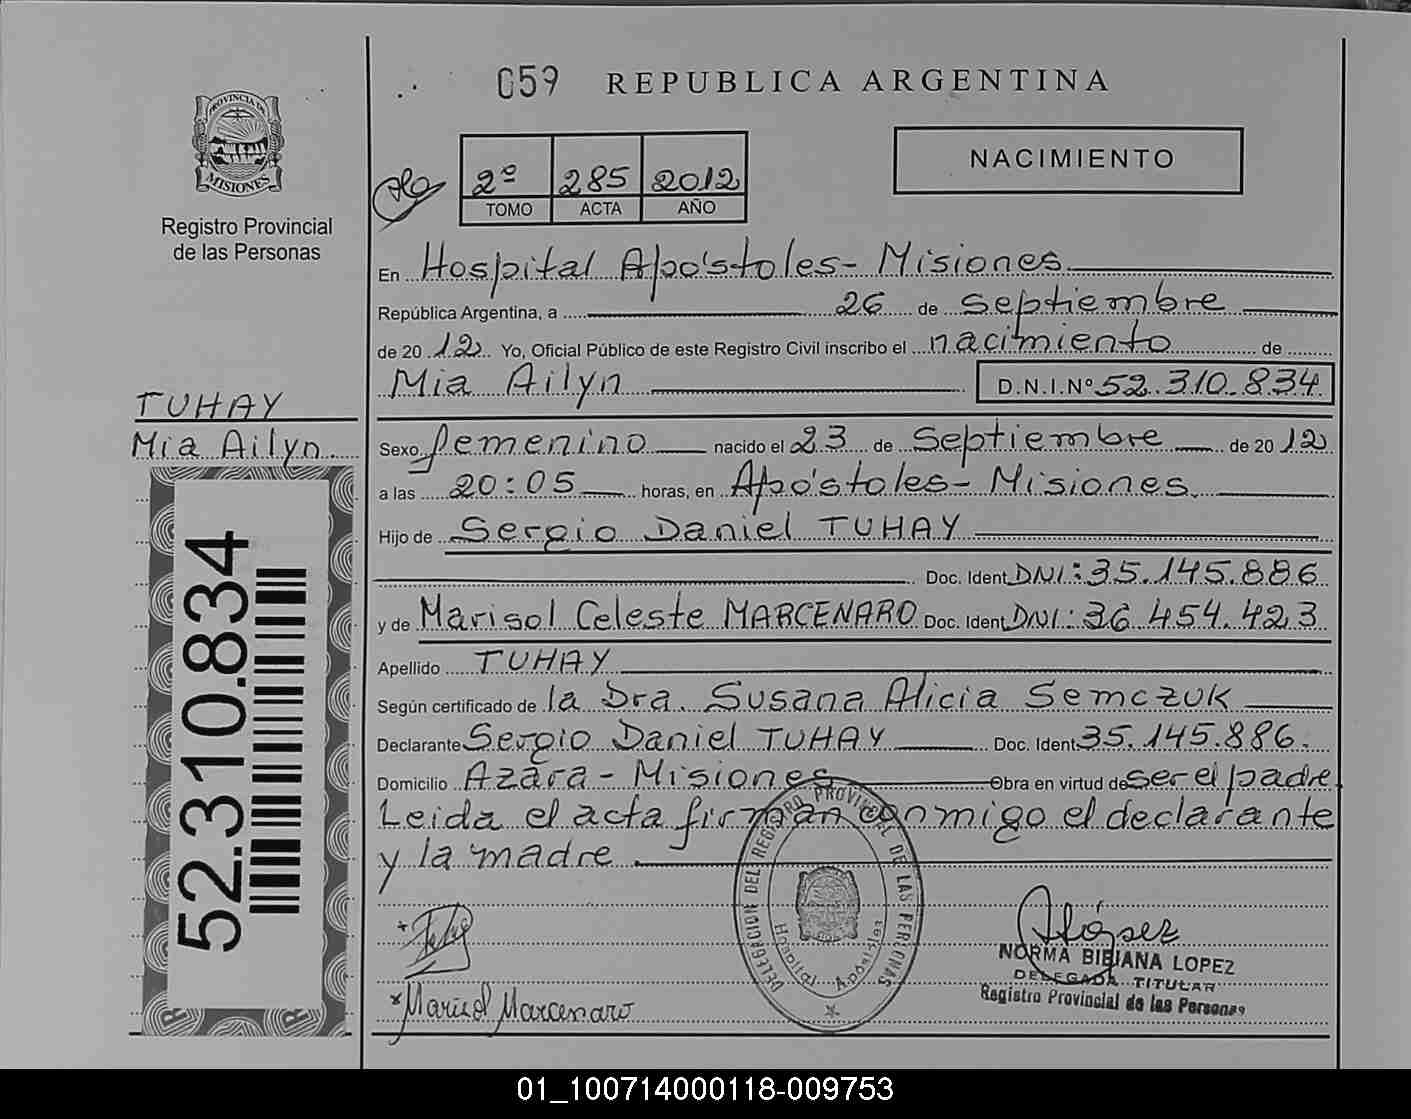 059 REPUBLICA ARGENTINA
PROVINCIA DE
MISIONES
Registro Provincial
de las Personas
NACIMIENTO
2º 285 2012
TOMO ACTA AÑO
En Hospital Apóstoles - Misiones
República Argentina, a 26 de Septiembre
de 2012 Yo, Oficial Público de este Registro Civil inscribo el nacimiento de
Mia Ailyn D.N.I.Nº 52.310.834
TUHAY
Mia Ailyn
Sexo femenino nacido el 23 de Septiembre de 2012
a las 20:05 horas, en Apóstoles - Misiones
Hijo de Sergio Daniel TUHAY
Doc. Ident DNI: 35.145.886
y de Marisol Celeste MARCENARO Doc. Ident DNI: 36.454.423
Apellido TUHAY
Según certificado de la Dra. Susana Alicia Semczuk
Declarante Sergio Daniel TUHAY Doc. Ident 35.145.886.
Domicilio Azara - Misiones Obra en virtud de ser el padre
Leida el acta firman conmigo el declarante
y la madre.
52.310.834
DELEGACION DEL REGISTRO PROVINCIAL DE LAS PERSONAS
Hospital Apóstoles
NORMA BIBIANA LOPEZ
DELEGADA TITULAR
Registro Provincial de las Personas
Marisol Marcenaro
01_100714000118-009753